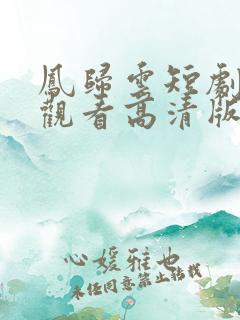 鳳歸雲短劇
觀看高清版
心媛雅也
未经同意禁止转载